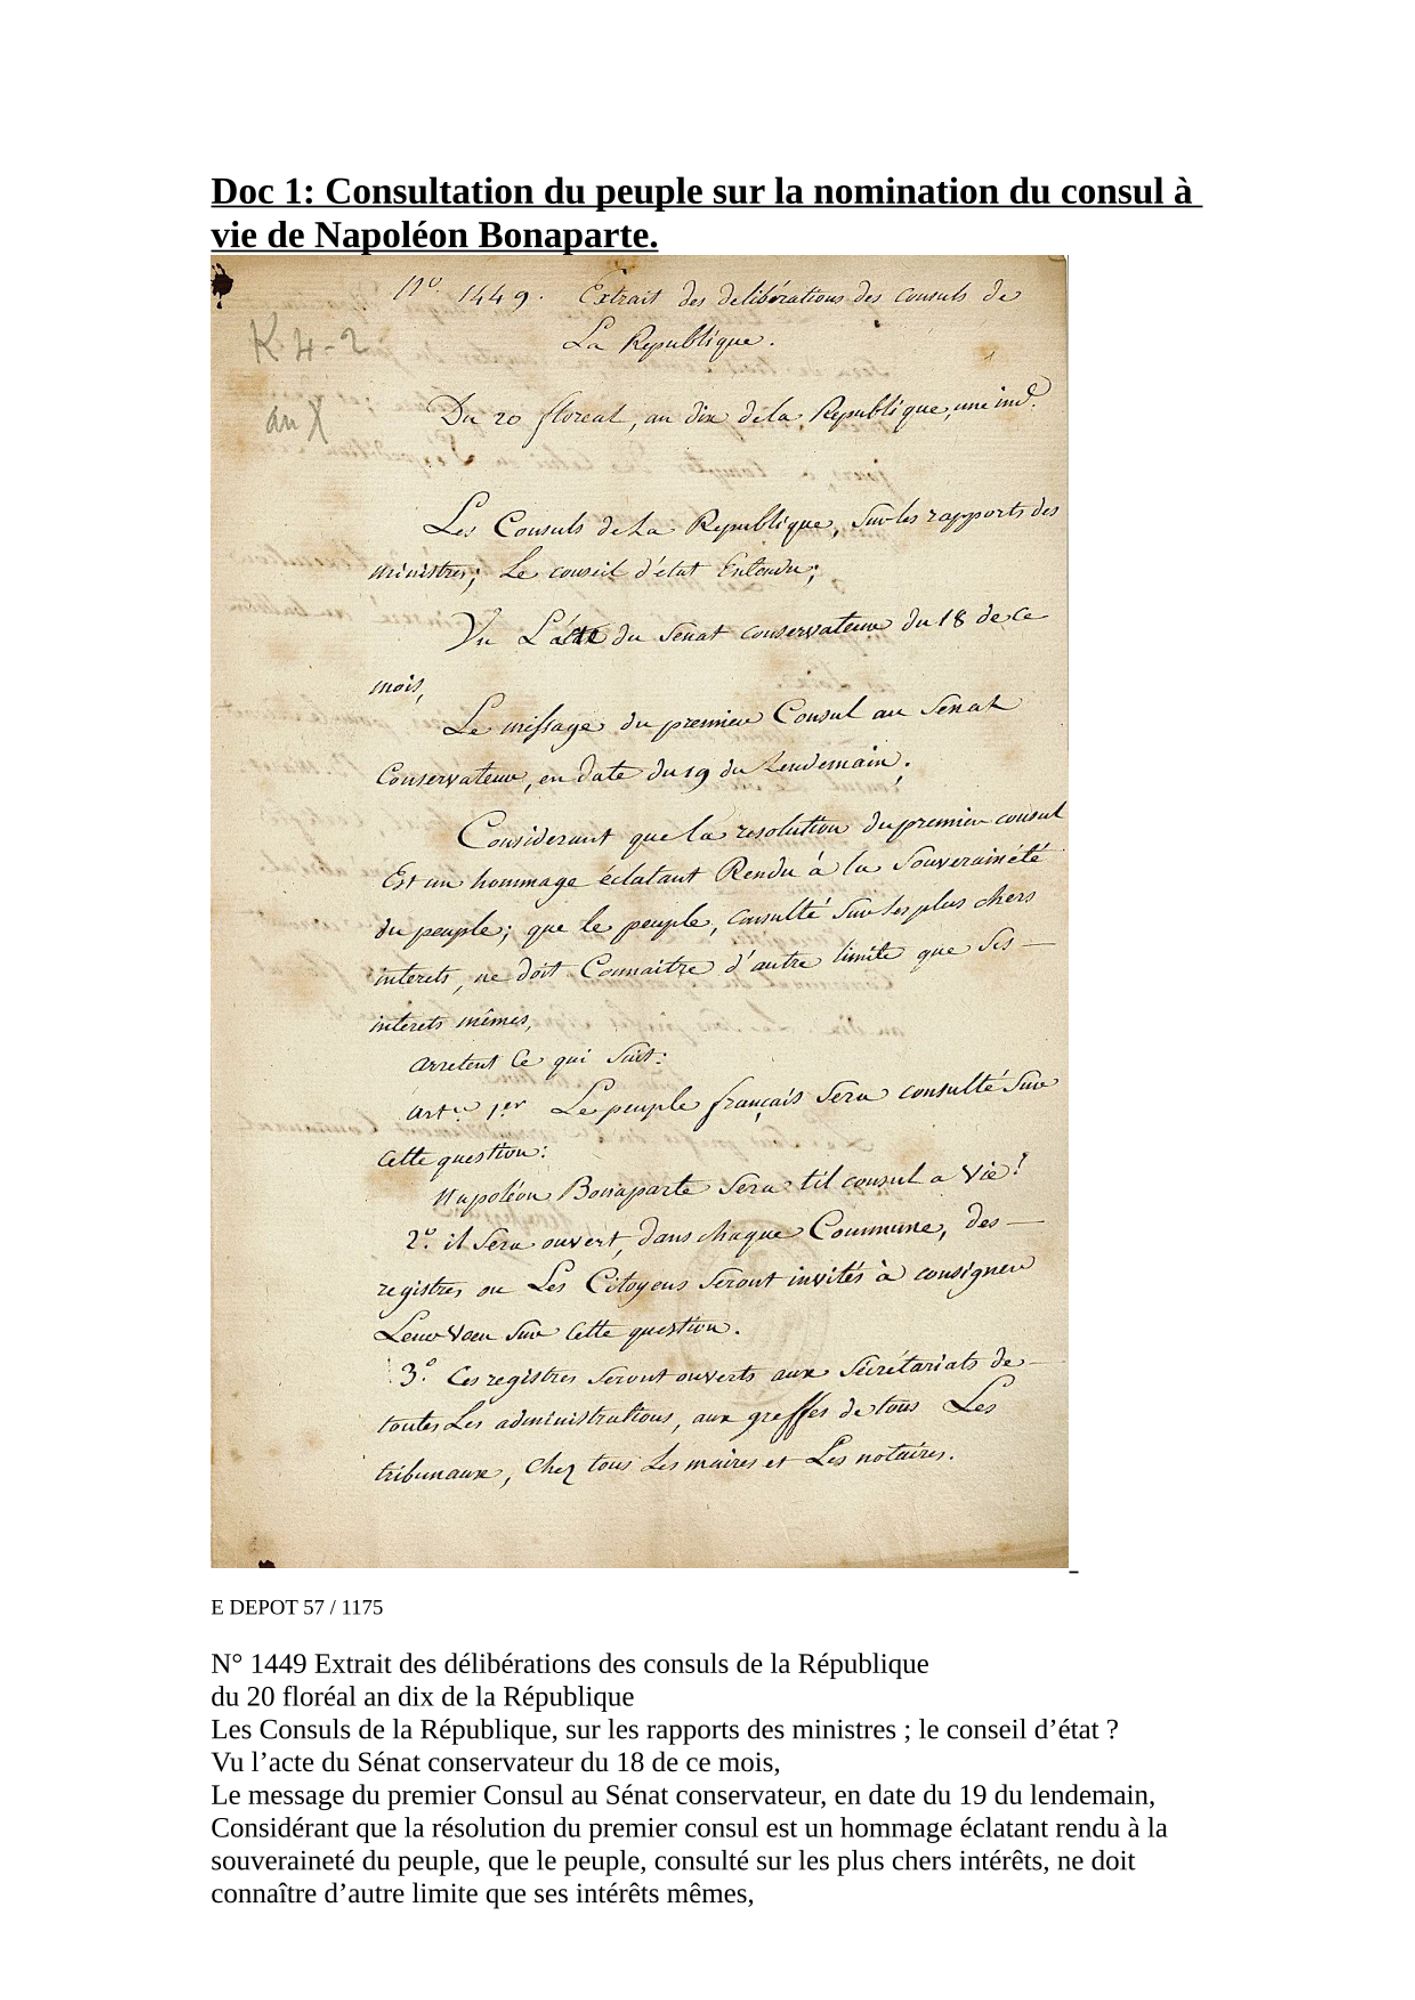 Doc 1: Consultation du peuple sur la nomination du consul à
vie de Napoléon Bonaparte.
N° 1449. Extrait des delibérations des consuls de
La Republique.
K 4-2
an X
Du 20 floreal, an dix de la Republique, une ind.
Les Consuls de La Republique, sur les rapports des
ministres; Le conseil d'état Entendu;
Vu L'acte du Senat conservateur du 18 de ce
mois,
Le message du premier Consul au Senat
Conservateur, en date du 19 du Lendemain.
Considerant que la resolution du premier consul
Est un hommage éclatant Rendu à la Souveraineté
du peuple; que le peuple, consulté sur ses plus chers
interets, ne doit Connaitre d'autre limite que ses —
interets mêmes,
arretent Ce qui suit:
art.le 1er Le peuple français sera consulté sur
cette question:
Napoléon Bonaparte sera til consul a vie?
2° il sera ouvert, dans chaque Commune, des —
registres ou Les Citoyens seront invités à consigner
Leur vœu sur cette question.
3° Ces registres seront ouverts aux secrétariats de —
toutes Les administrations, aux greffes de tous Les
tribunaux, chez tous Les maires et Les notaires.
E DEPOT 57 / 1175
N° 1449 Extrait des délibérations des consuls de la République
du 20 floréal an dix de la République
Les Consuls de la République, sur les rapports des ministres ; le conseil d’état ?
Vu l’acte du Sénat conservateur du 18 de ce mois,
Le message du premier Consul au Sénat conservateur, en date du 19 du lendemain,
Considérant que la résolution du premier consul est un hommage éclatant rendu à la
souveraineté du peuple, que le peuple, consulté sur les plus chers intérêts, ne doit
connaître d’autre limite que ses intérêts mêmes,